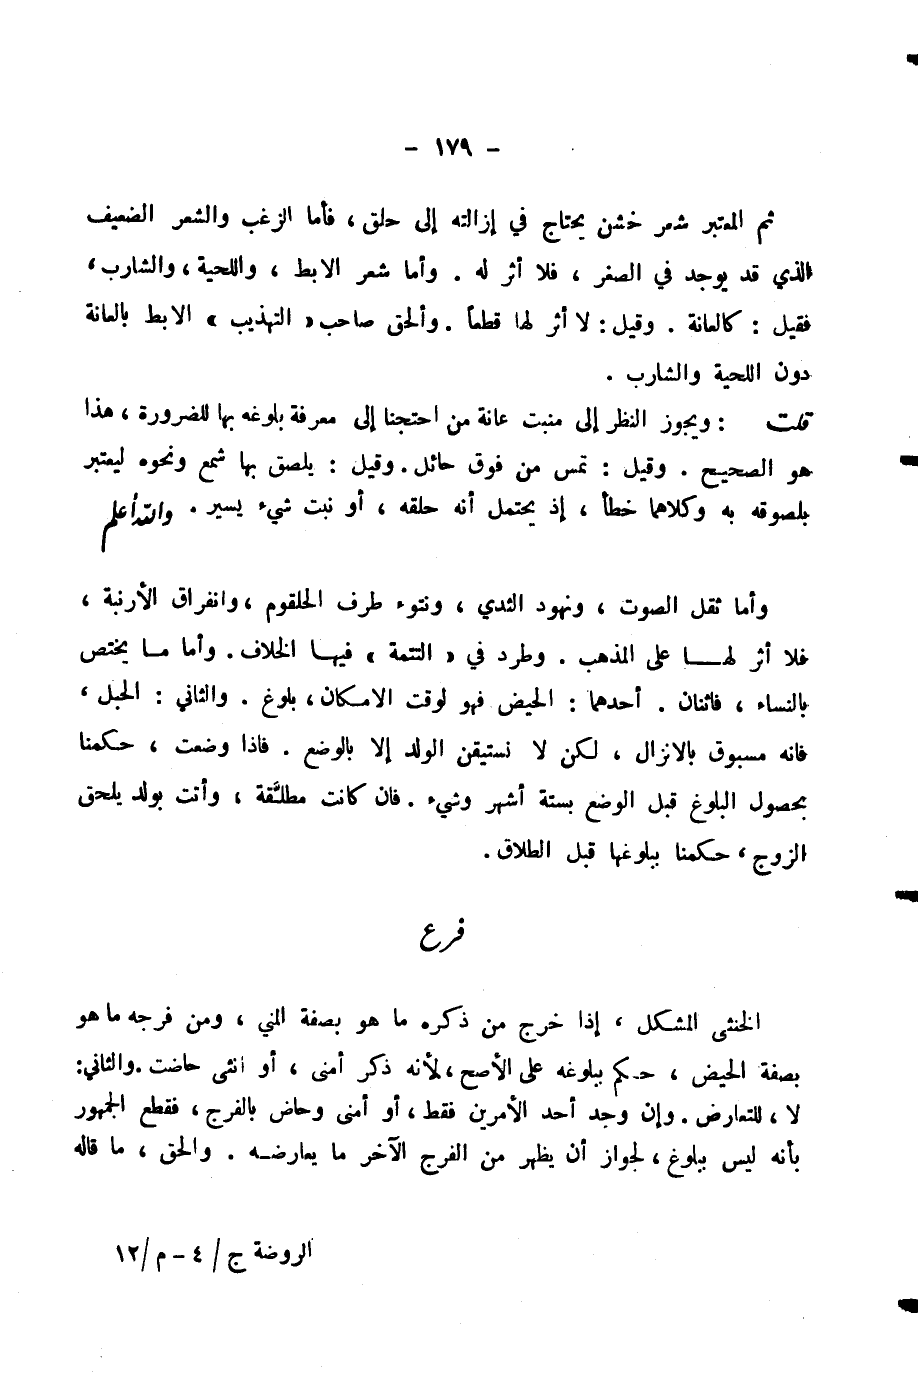 - ١٧٩ -
ثم المعتبر شعر خشن يحتاج في إزالته إلى حلق ، فأما الزغب والشعر الضعيف
الذي قد يوجد في الصغر ، فلا أثر له . وأما شعر الابط ، واللحية ، والشارب ،
فقيل : كالعانة . وقيل : لا أثر لها قطعاً . وألحق صاحب « التهذيب » الابط بالعانة
دون اللحية والشارب .
قلت : ويجوز النظر إلى منبت عانة من احتجنا إلى معرفة بلوغه بها للضرورة ، هذا
هو الصحيح . وقيل : تمس من فوق حائل . وقيل : يلصق بها شمع ونحوه ليعتبر
بلصوقه به وكلاهما خطأ ، إذ يحتمل أنه حلقه ، أو نبت شيء يسير . والله أعلم
وأما ثقل الصوت ، ونهود الثدي ، ونتوء طرف الحلقوم ، وانفراق الأرنبة ،
فلا أثر لهـــا على المذهب . وطرد في « التتمة » فيهـا الخلاف . وأما مـا يختص
بالنساء ، فاثنان . أحدهما : الحيض فهو لوقت الامكان ، بلوغ . والثاني : الحبل ،
فانه مسبوق بالانزال ، لكن لا نستيقن الولد إلا بالوضع . فاذا وضعت ، حكمنا
بحصول البلوغ قبل الوضع بستة أشهر وشيء . فان كانت مطلَّقة ، وأتت بولد يلحق
الزوج ، حكمنا ببلوغها قبل الطلاق .
فرع
الخنثى المشكل ، إذا خرج من ذكره ما هو بصفة المني ، ومن فرجه ما هو
بصفة الحيض ، حكم ببلوغه على الأصح ، لأنه ذكر أمنى ، أو انثى حاضت . والثاني :
لا ، للتعارض . وإن وجد أحد الأمرين فقط ، أو أمنى وحاض بالفرج ، فقطع الجمهور
بأنه ليس ببلوغ ، لجواز أن يظهر من الفرج الآخر ما يعارضـه . والحق ، ما قاله
الروضة ج / ٤ - م / ١٢